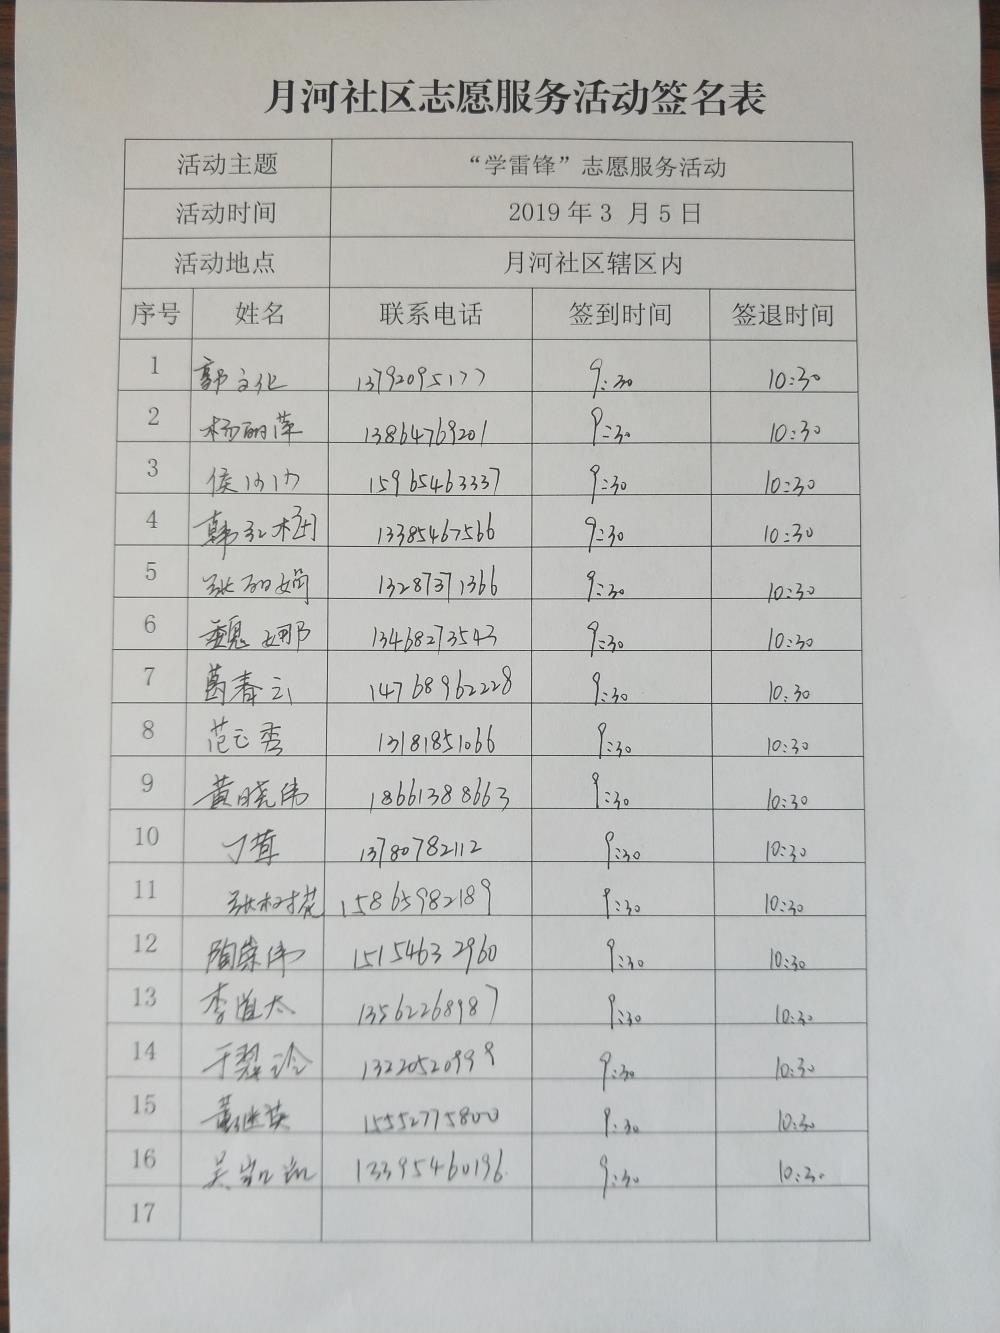 月河社区志愿服务活动签名表
活动主题 “学雷锋”志愿服务活动
活动时间 2019年3 月5日
活动地点 月河社区辖区内
序号 姓名 联系电话 签到时间 签退时间
1 郭文化 13792095177 9:30 10:30
2 杨丽萍 13864769201 9:30 10:30
3 侯 15965463337 9:30 10:30
4 韩红梅 13385467566 9:30 10:30
5 张丽娟 13287371366 9:30 10:30
6 魏娜 13468273543 9:30 10:30
7 葛春云 14768962228 9:30 10:30
8 范正秀 13181851066 9:30 10:30
9 黄晓伟 18661388663 9:30 10:30
10 丁茸 13780782112 9:30 10:30
11 张树花 15865982189 9:30 10:30
12 陶荣伟 15154632960 9:30 10:30
13 李道太 13562268987 9:30 10:30
14 于翠玲 13220520999 9:30 10:30
15 黄继英 15552775800 9:30 10:30
16 吴凯凯 13395460196 9:30 10:30
17